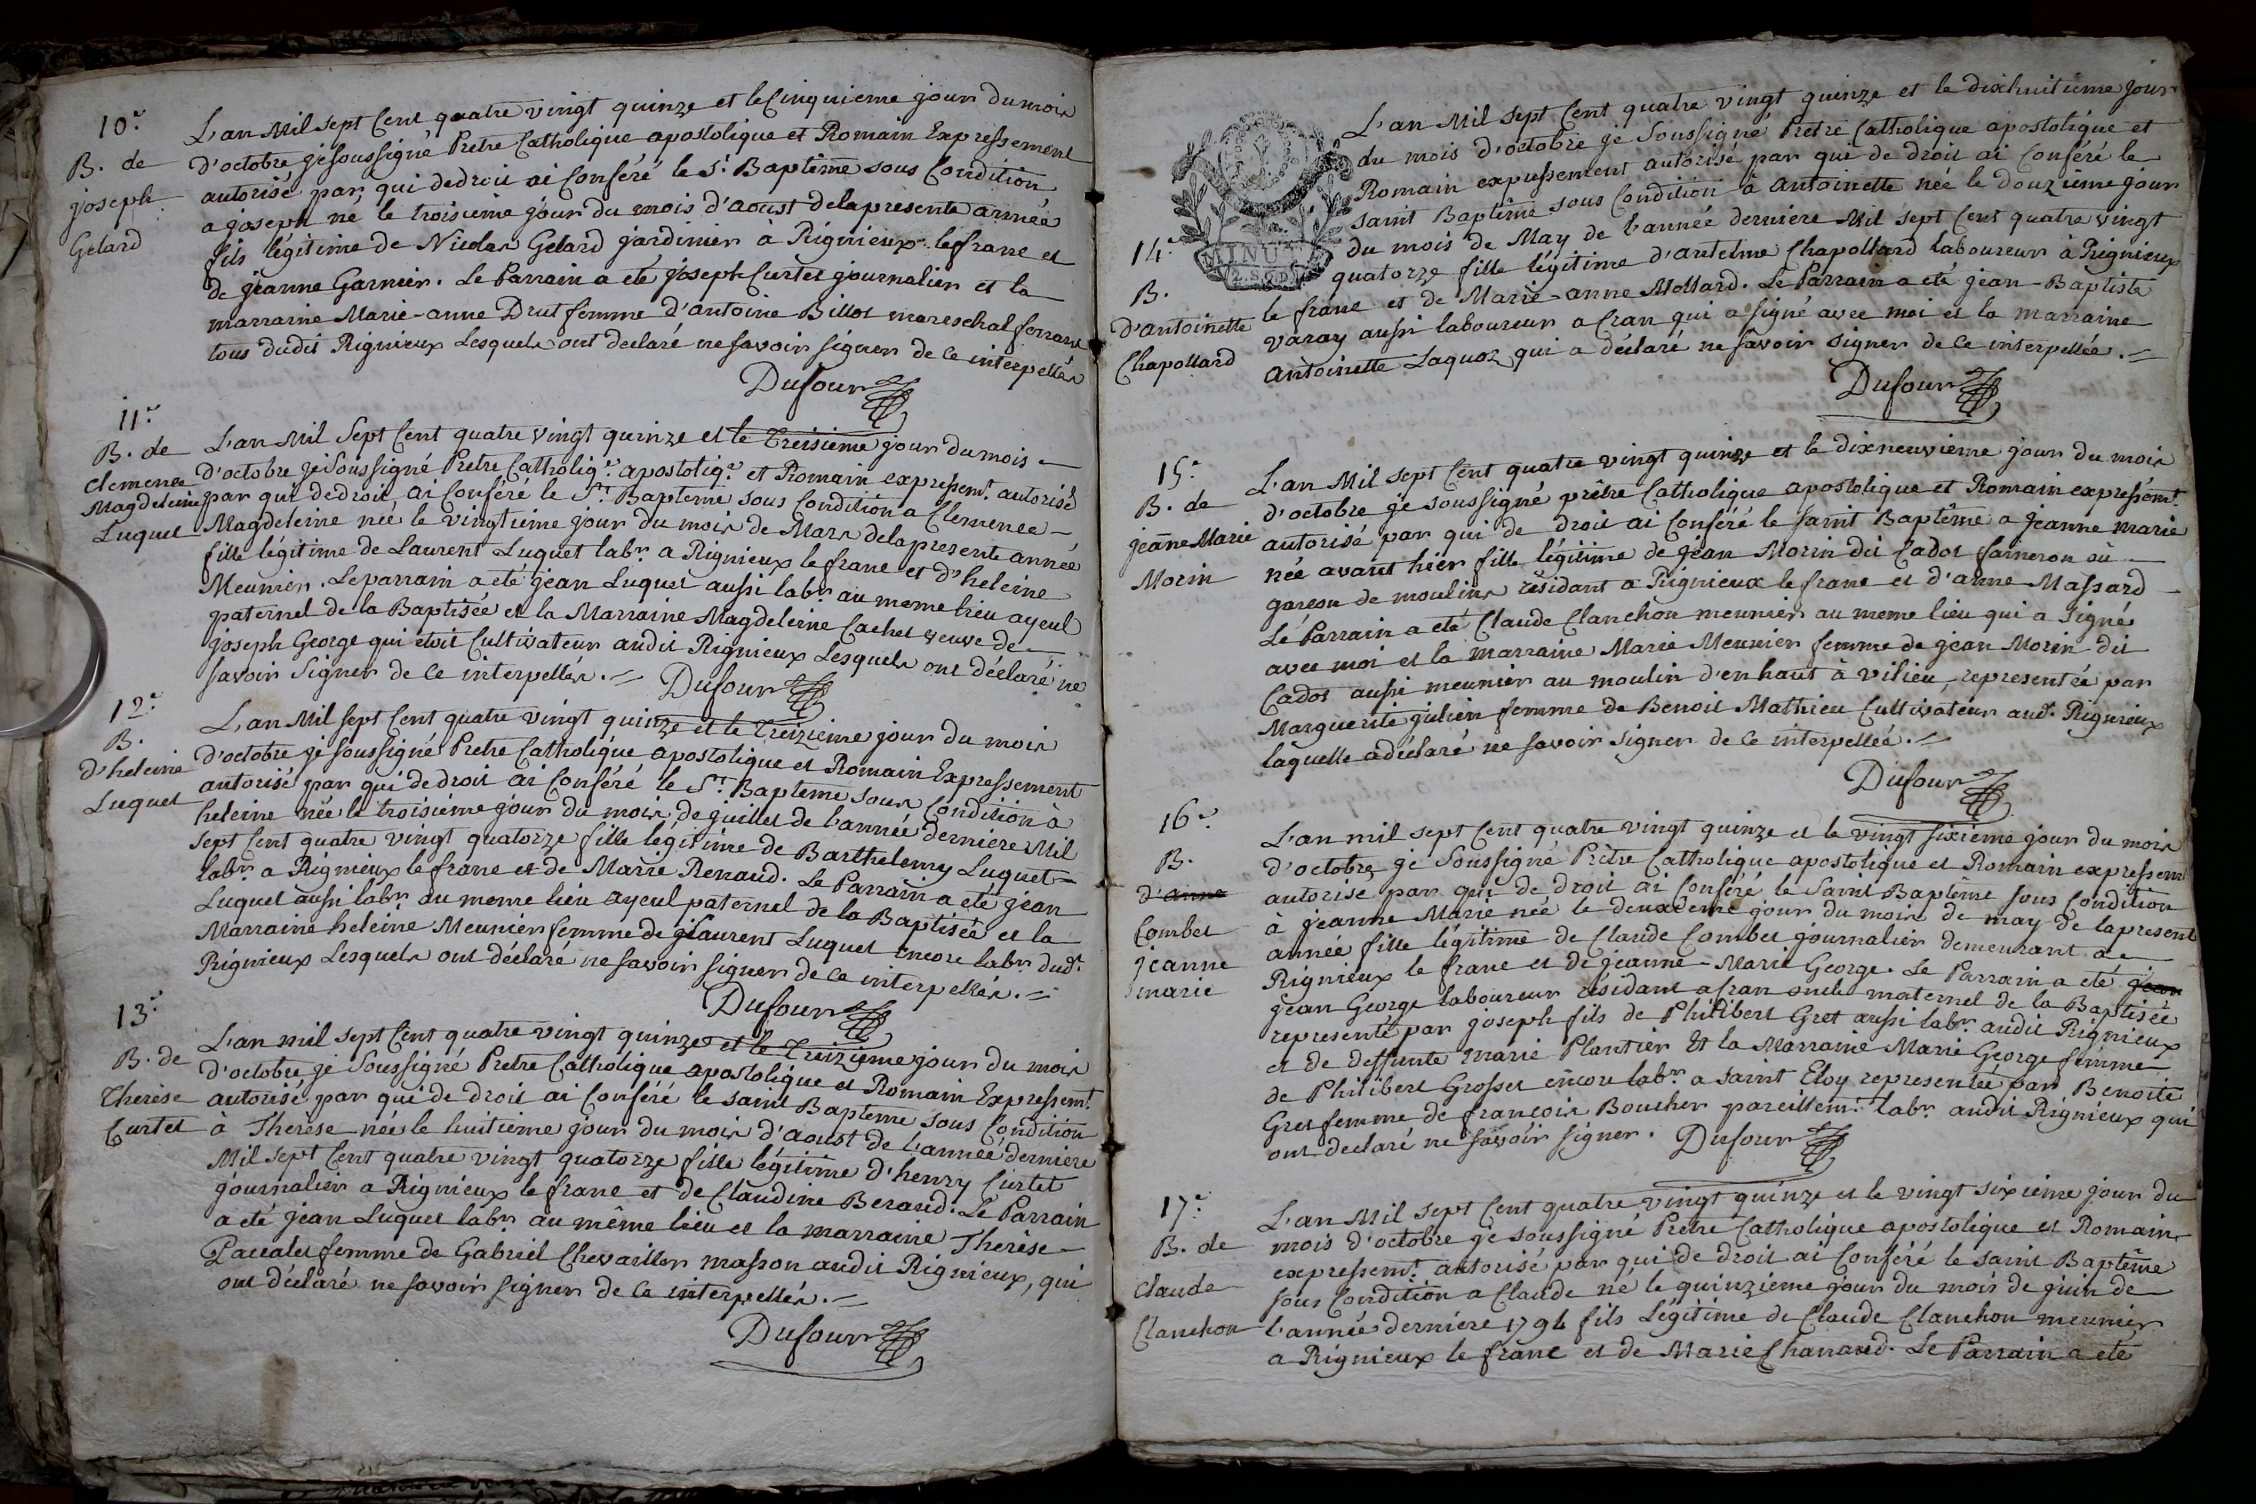 10.e
B. de
joseph
Gelard
L'an Mil sept Cent quatre vingt quinze et le Cinquieme jour du mois
d'octobre je soussigné Pretre Catholique apostolique et Romain Expressement
autorisé par qui de droit ai Conféré le St. Baptême sous Condition
a joseph né le troisieme jour du mois d'aoust de la presente année
fils légitime de Nicolas Gelard jardinier à Rignieux le franc et
de jeanne Garnier. Le Parrain a été joseph Curtet journalier et la
marraine Marie-anne Drut femme d'antoine Billot mareschal ferrant
tous dudit Rignieux Lesquels ont declaré ne savoir signer de ce interpellés
Dufour
11.e
B. de
Clemence
Magdeleine
Luquet
L'an Mil Sept Cent quatre vingt quinze et le Treisieme jour du mois
d'octobre je Soussigné Pretre Catholiq.e apostoliq.e et Romain expressemt. autorisé
par qui de droit ai Conféré le St. Bapteme sous Condition a Clemence
Magdeleine née le vingtieme jour du mois de Mars de la presente année
fille légitime de Laurent Luquet labr. a Rignieux le franc et d'heleine
Meunier. Le parrain a été jean Luquet aussi labr. au meme lieu ayeul
paternel de la Baptisée et la Marraine Magdeleine Cachet veuve de
joseph George qui etoit Cultivateur audit Rignieux Lesquels ont déclaré ne
savoir Signer de ce interpellés. Dufour
12.e
B.
d'heleine
Luquet
L'an Mil sept Cent quatre vingt quinze et le Treizieme jour du mois
d'octobre je soussigné Pretre Catholique apostolique et Romain Expressement
autorisé par qui de droit ai Conféré le St. Bapteme sous Condition à
heleine née le troisieme jour du mois de juillet de l'année derniere Mil
sept Cent quatre vingt quatorze fille légitime de Barthelemy Luquet
labr. a Rignieux le franc et de Marie Renaud. Le Parrain a eté jean
Luquet aussi labr. au meme lieu ayeul paternel de la Baptisée et la
Marraine heleine Meunier femme de Laurent Luquet encore labr. dudt.
Rignieux Lesquels ont déclaré ne savoir signer de ce interpellés.
Dufour
13.e
B. de
Therèse
Curtet
L'an mil sept Cent quatre vingt quinze et le Treizieme jour du mois
d'octobre je Soussigné Pretre Catholique apostolique et Romain Expressemt.
autorisé par qui de droit ai Conféré le saint Bapteme sous Condition
à Therèse née le huitieme jour du mois d'aoust de l'année derniere
Mil sept Cent quatre vingt quatorze fille légitime d'henry Curtet
journalier a Rignieux le franc et de Claudine Beraud. Le Parrain
a eté jean Luquet labr. au même lieu et la marraine Therèse
femme de Gabriel Chevaillon masson audit Rignieux, qui
ont déclaré ne savoir signer de ce interpellés.
Dufour
MINUT
14.e
B.
d'antoinette
Chapollard
L'an Mil sept Cent quatre vingt quinze et le dixhuitieme jour
du mois d'octobre je Soussigné Pretre Catholique apostolique et
Romain expressement autorisé par qui de droit ai Conféré le
saint Baptême sous Condition à antoinette née le douzieme jour
du mois de May de l'année derniere Mil sept Cent quatre vingt
quatorze fille légitime d'antelme Chapollard laboureur à Rignieux
le franc et de Marie-anne Mollard. Le Parrain a eté jean-Baptiste
varay aussi laboureur a Cran qui a signé avec moi et la marraine
antoinette Laquoz qui a déclaré ne savoir signer de ce interpellée.
Dufour
15.e
B. de
jeanne Marie
Morin
L'an Mil sept Cent quatre vingt quinze et le dixneuvieme jour du mois
d'octobre je soussigné prêtre Catholique apostolique et Romain expressemt.
autorisé par qui de droit ai Conféré le saint Baptême a jeanne marie
née avant hier fille légitime de jean Morin dit Cadot farineron où
garçon de moulins résidant a Rignieux le franc et d'anne Massard
Le Parrain a eté Claude Clanchon meunier au meme lieu qui a signé
avec moi et la marraine Marie Meunier femme de jean Morin dit
Cadot aussi meunier au moulin d'en haut à vilieu, representée par
Marguerite julien femme de Benoit Mathieu Cultivateur audt. Rignieux
laquelle a déclaré ne savoir signer de ce interpellée.
Dufour
16.e
B.
d'anne
Combet
jeanne
marie
L'an mil sept Cent quatre vingt quinze et le vingt sixieme jour du mois
d'octobre je Soussigné Prètre Catholique apostolique et Romain expressemt
autorisé par qui de droit ai Conféré le Saint Baptême sous Condition
à jeanne Marie née le deuxieme jour du mois de may de la present
année fille légitime de Claude Combet journalier demeurant a
Rignieux le franc et de jeanne-Marie George. Le Parrain a eté jean
jean George laboureur résidant a Cran oncle maternel de la Baptisée
representé par joseph fils de Philibert Gret aussi labr. audit Rignieux
et de deffunte marie Plantier Et la Marraine Marie George femme
de Philibert Grosset encore labr. a saint Eloy representée par Benoite
Gret femme de françois Boucher pareillemt. labr. audit Rignieux qui
ont declaré ne savoir signer. Dufour
17.e
B. de
Claude
Clanchon
L'an Mil sept Cent quatre vingt quinze et le vingt sixieme jour du
mois d'octobre je soussigné Pretre Catholique apostolique et Romain
expressemt. autorisé par qui de droit ai Conféré le saint Baptême
sous Condition a Claude né le quinzieme jour du mois de juin de
l'année derniére 1794 fils Légitime de Claude Clanchon meunier
a Rignieux le franc et de Marie Chanard. Le Parrain a eté